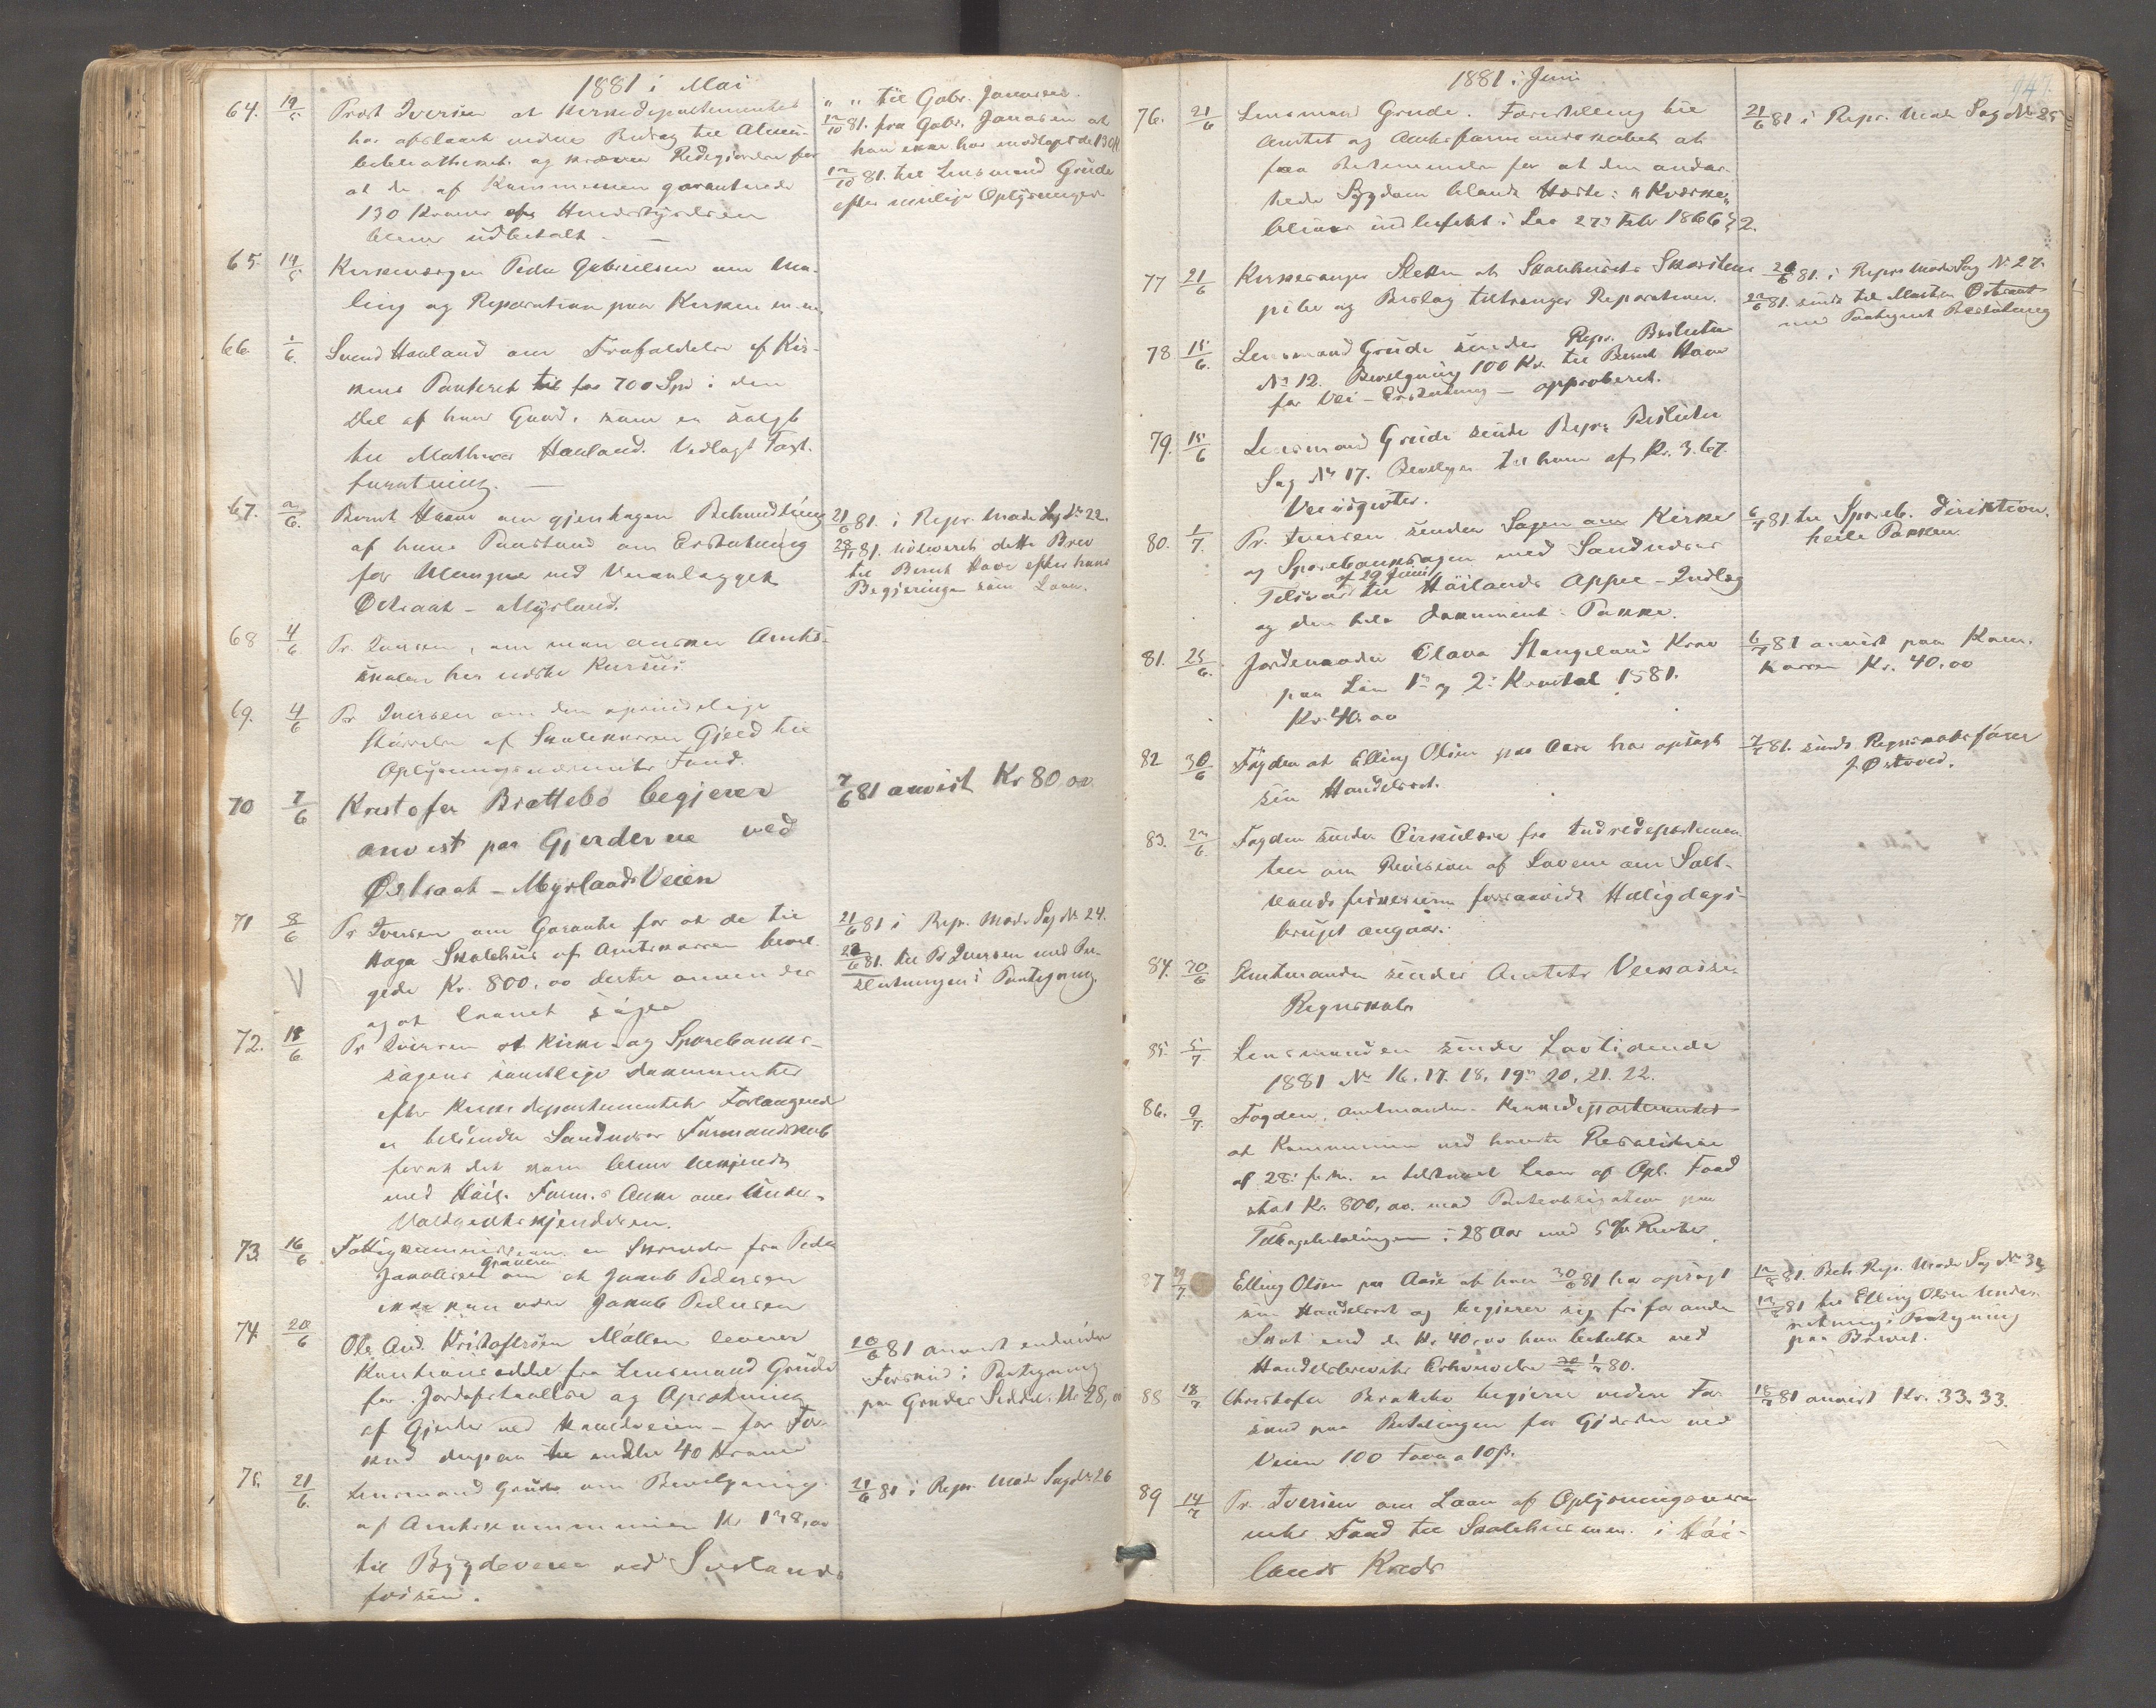 1881 i Mai
64. 19/5 Prost Iversen at Kirkedepartementet
har afslaaet videre Bidrag til Almue-
bibliotheket og kræver Redegjørelse for
at de af Kommunen garanterede
130 Kroner
bliver udbetalt.
" " til Gabr. Jonassen.
12/10 81. fra Gabr. Jonasen at
han ikke har modtaget de 130 Kr
12/10 81. til Lensmand Grude
efter mulige Oplysninger.
65. 19/5 Kirkeværgen Peder Gabrielsen om Ma-
ling og Reparation paa Kirken m.m.
66. 1/6. Svend Hauland om Frafaldelse af Kir-
kens Panteret til for 700 Spd i den
Del af hans Gaard, som er solgt
til Mathias Hauland. Vedlagt Taxt-
forretning.
67. 2/6. Bernt Haave om gjentagen Behandling
af hans Paastand om Erstatning
for Ulempe ved Veianlægget
Østraat - Myrland.
21/6 81. i Repr. Møde Sag No 22.
28/11 81. udleveret dette Brev
til Bernt Haave efter hans
Begjæring som Laan.
68 4/6 Pr. Iversen, om man ønsker Amts-
skolen her næste Kursus.
69. 4/6 Pr Iversen om den oprindelige
Størrelse af Skolekassens Gjeld til
Oplysningsvæsenets Fond.
70 7/6 Kristofer Brattebø begjerer
anvist paa Gjerderne ved
Østraat - Myrlands Veien
7/6 81 anvist Kr 80,00.
71 8/6 Pr Iversen om Garanti for at de til
Høga Skolehus af Amtskassen bevil-
gede Kr. 800,00 dertil anvendes
og at Laanet søges
21/6 81 i Repr. Møde Sag No 24.
22/6 81. til Pr Iversen med Be-
slutningen i Paategning.
72. 18/6. Pr Iversen at Kirke- og Sparebanks-
sagens samtlige Dokumenter
efter Kirkedepartementets Forlangende
er tilsendt Sandnes Formandskab
med Høil. Form.s Anke over Under-
Voldgiftskjendelsen.
73. 16/6 Fattigkommissionen en Skrivelse fra Peder
Jakobsen Graveren om at Jakob Pedersen
ikke kan være Jakob Pedersen
74. 20/6 Ole And. Kristofersen Møllen leverer
Kautionsseddel fra Lensmand Grude
for Jordafstaaelse og Opsætning
af Gjerder ved Hanaveien - for For-
skud derpaa til endte 40 Kroner
20/6 81 anvist endvidere
Forskud i Paategning
paa Grudes Seddel. Kr 28,00
75. 21/6. Lensmand Grude om Bevilgning
af Amtskommunen Kr 138,00
til Bygdeveien ved Sviland
21/6 81 i Repr. Møde Sag No 26
1881 i Juni
76. 21/6 Lensmand Grude. Forestilling til
Amtet og Amtsformandskabet at
faa Bestemmelse for at den ondar-
tede Sygdom blandt Heste: "Kværke"
bliver indbefattet i Lov 27de Febr 1866 § 2.
21/6 81 i Repr. Møde Sag No 25
77 21/6 Kirkesanger Slettebø at Skolehusets Skorstens
pibe og Beslag tiltrænger Reparation.
21/6 81. i Repr. Møde Sag No 27.
22/6 81. sendt til Morten Østraat
med Paategnet Beslutning
78 15/6. Lensmand Grude sender Repr. Beslutn.
No 12. Bevilgning 100 Kr. til Bernt Haave
for Vei-Erstatning - approberet.
79. 15/6 Lensmand Grude sender Repr. Beslutn.
Sag No 17. Bevilgn. til ham af Kr. 3.67.
Veiudgifter.
80. 1/7. Pr. Iversen sender Sagen om Kirke
og Sparebanksagen med Sandnæses
Tilsvar af 29 Juni til Høilands Appel-Indlæg
og den hele Dokument-Pakke.
6/7 81. til Spareb. Direktion.
hele Pakken.
81. 25/6. Jordemoder Olava Stangeland Krav
paa Løn 1ste og 2det Kvartal 1881.
Kr. 40.00
6/7 81 anvist paa Kom.
Kassen Kr. 40.00
82 30/6 Fogden at Elling Olsen paa Aase har opsagt
sin Handelsret.
7/7 81. sendt Regnskabsfører
J. Østraad.
83. 27/6. Fogden sender Cirkulære fra Indredepartemen-
tet om Revision af Lovene om Salt-
vandsfiskerierne forsaavidt Helligdags-
bruget angaar.
84. 30/6 Amtmanden sender Amtets Veikasse-
Regnskab
85. 5/7 Lensmanden sender Lovtidende
1881 No 16. 17. 18. 19. 20. 21. 22.
86. 9/7. Fogden, Amtmanden. Kirkedepartementet
at Kommunen ved høieste Resolution
af 28de f.M. er tilstaaet Laan af Opl. Fond
stort Kr. 800,00 mod Panteobligation paa
Tilbagebetalingen i 28 Aar med 5 % Renter.
87 29/7 Elling Olsen paa Aase at han 30/6 81 har opsagt
sin Handelsret og begjerer sig fri for anden
Skat end de Kr 40,00 han betalte ved
Handelsbrevets Erhvervelse 1/7 80.
12/8 81. Beh. Rep. Møde Sag No 33
12/8 81 til Elling Olsen Under-
retning i Paategning
paa Brevet.
88 18/7 Christofer Brattebø begjerer videre For-
skud paa Betalingen for Gjerder ved
Veien 100 Favne a 10 ß.
18/7 81 anvist Kr. 33.33.
89 14/7 Pr. Iversen om Laan af Oplysningsvæse-
nets Fond til Skolehuse m.m. i Høi-
lands Kreds